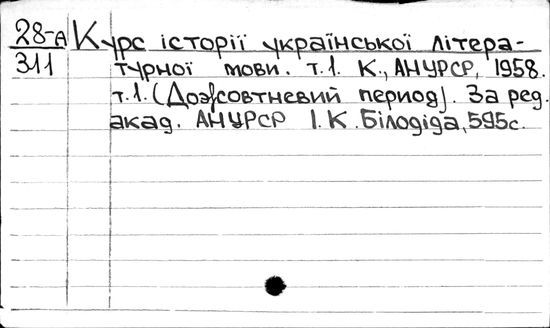 28-А Курс історії української літера-
311 турної мови. т.1. К., АНУРСР, 1958.
т.1. (Дожовтневий период). За ред.
акад. АНУРСР І.К.Білодіда, 595с.